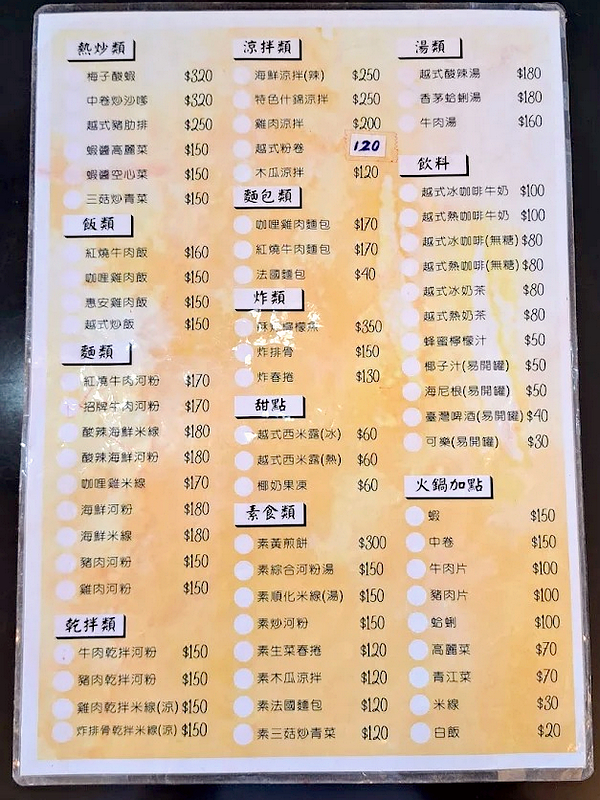 熱炒類
梅子酸蝦 $320
中卷炒沙嗲 $320
越式豬肋排 $250
蝦醬高麗菜 $150
蝦醬空心菜 $150
三菇炒青菜 $150
飯類
紅燒牛肉飯 $160
咖哩雞肉飯 $150
惠安雞肉飯 $150
越式炒飯 $150
麵類
紅燒牛肉河粉 $170
招牌牛肉河粉 $170
酸辣海鮮米線 $180
酸辣海鮮河粉 $180
咖哩雞米線 $170
海鮮河粉 $180
海鮮米線 $180
豬肉河粉 $150
雞肉河粉 $150
乾拌類
牛肉乾拌河粉 $150
豬肉乾拌河粉 $150
雞肉乾拌米線(涼) $150
炸排骨乾拌米線(涼) $150
涼拌類
海鮮涼拌(辣) $250
特色什錦涼拌 $250
雞肉涼拌 $200
越式粉卷 120
木瓜涼拌 $120
麵包類
咖哩雞肉麵包 $170
紅燒牛肉麵包 $170
法國麵包 $40
炸類
檸檬魚 $350
炸排骨 $150
炸春捲 $130
甜點
越式西米露(冰) $60
越式西米露(熱) $60
椰奶果凍 $60
素食類
素黃煎餅 $300
素綜合河粉湯 $150
素順化米線(湯) $150
素炒河粉 $150
素生菜春捲 $120
素木瓜涼拌 $120
素法國麵包 $120
素三菇炒青菜 $120
湯類
越式酸辣湯 $180
香茅蛤蜊湯 $180
牛肉湯 $160
飲料
越式冰咖啡牛奶 $100
越式熱咖啡牛奶 $100
越式冰咖啡(無糖) $80
越式熱咖啡(無糖) $80
越式冰奶茶 $80
越式熱奶茶 $80
蜂蜜檸檬汁 $50
椰子汁(易開罐) $50
海尼根(易開罐) $50
臺灣啤酒(易開罐) $40
可樂(易開罐) $30
火鍋加點
蝦 $150
中卷 $150
牛肉片 $100
豬肉片 $100
蛤蜊 $100
高麗菜 $70
青江菜 $70
米線 $30
白飯 $20